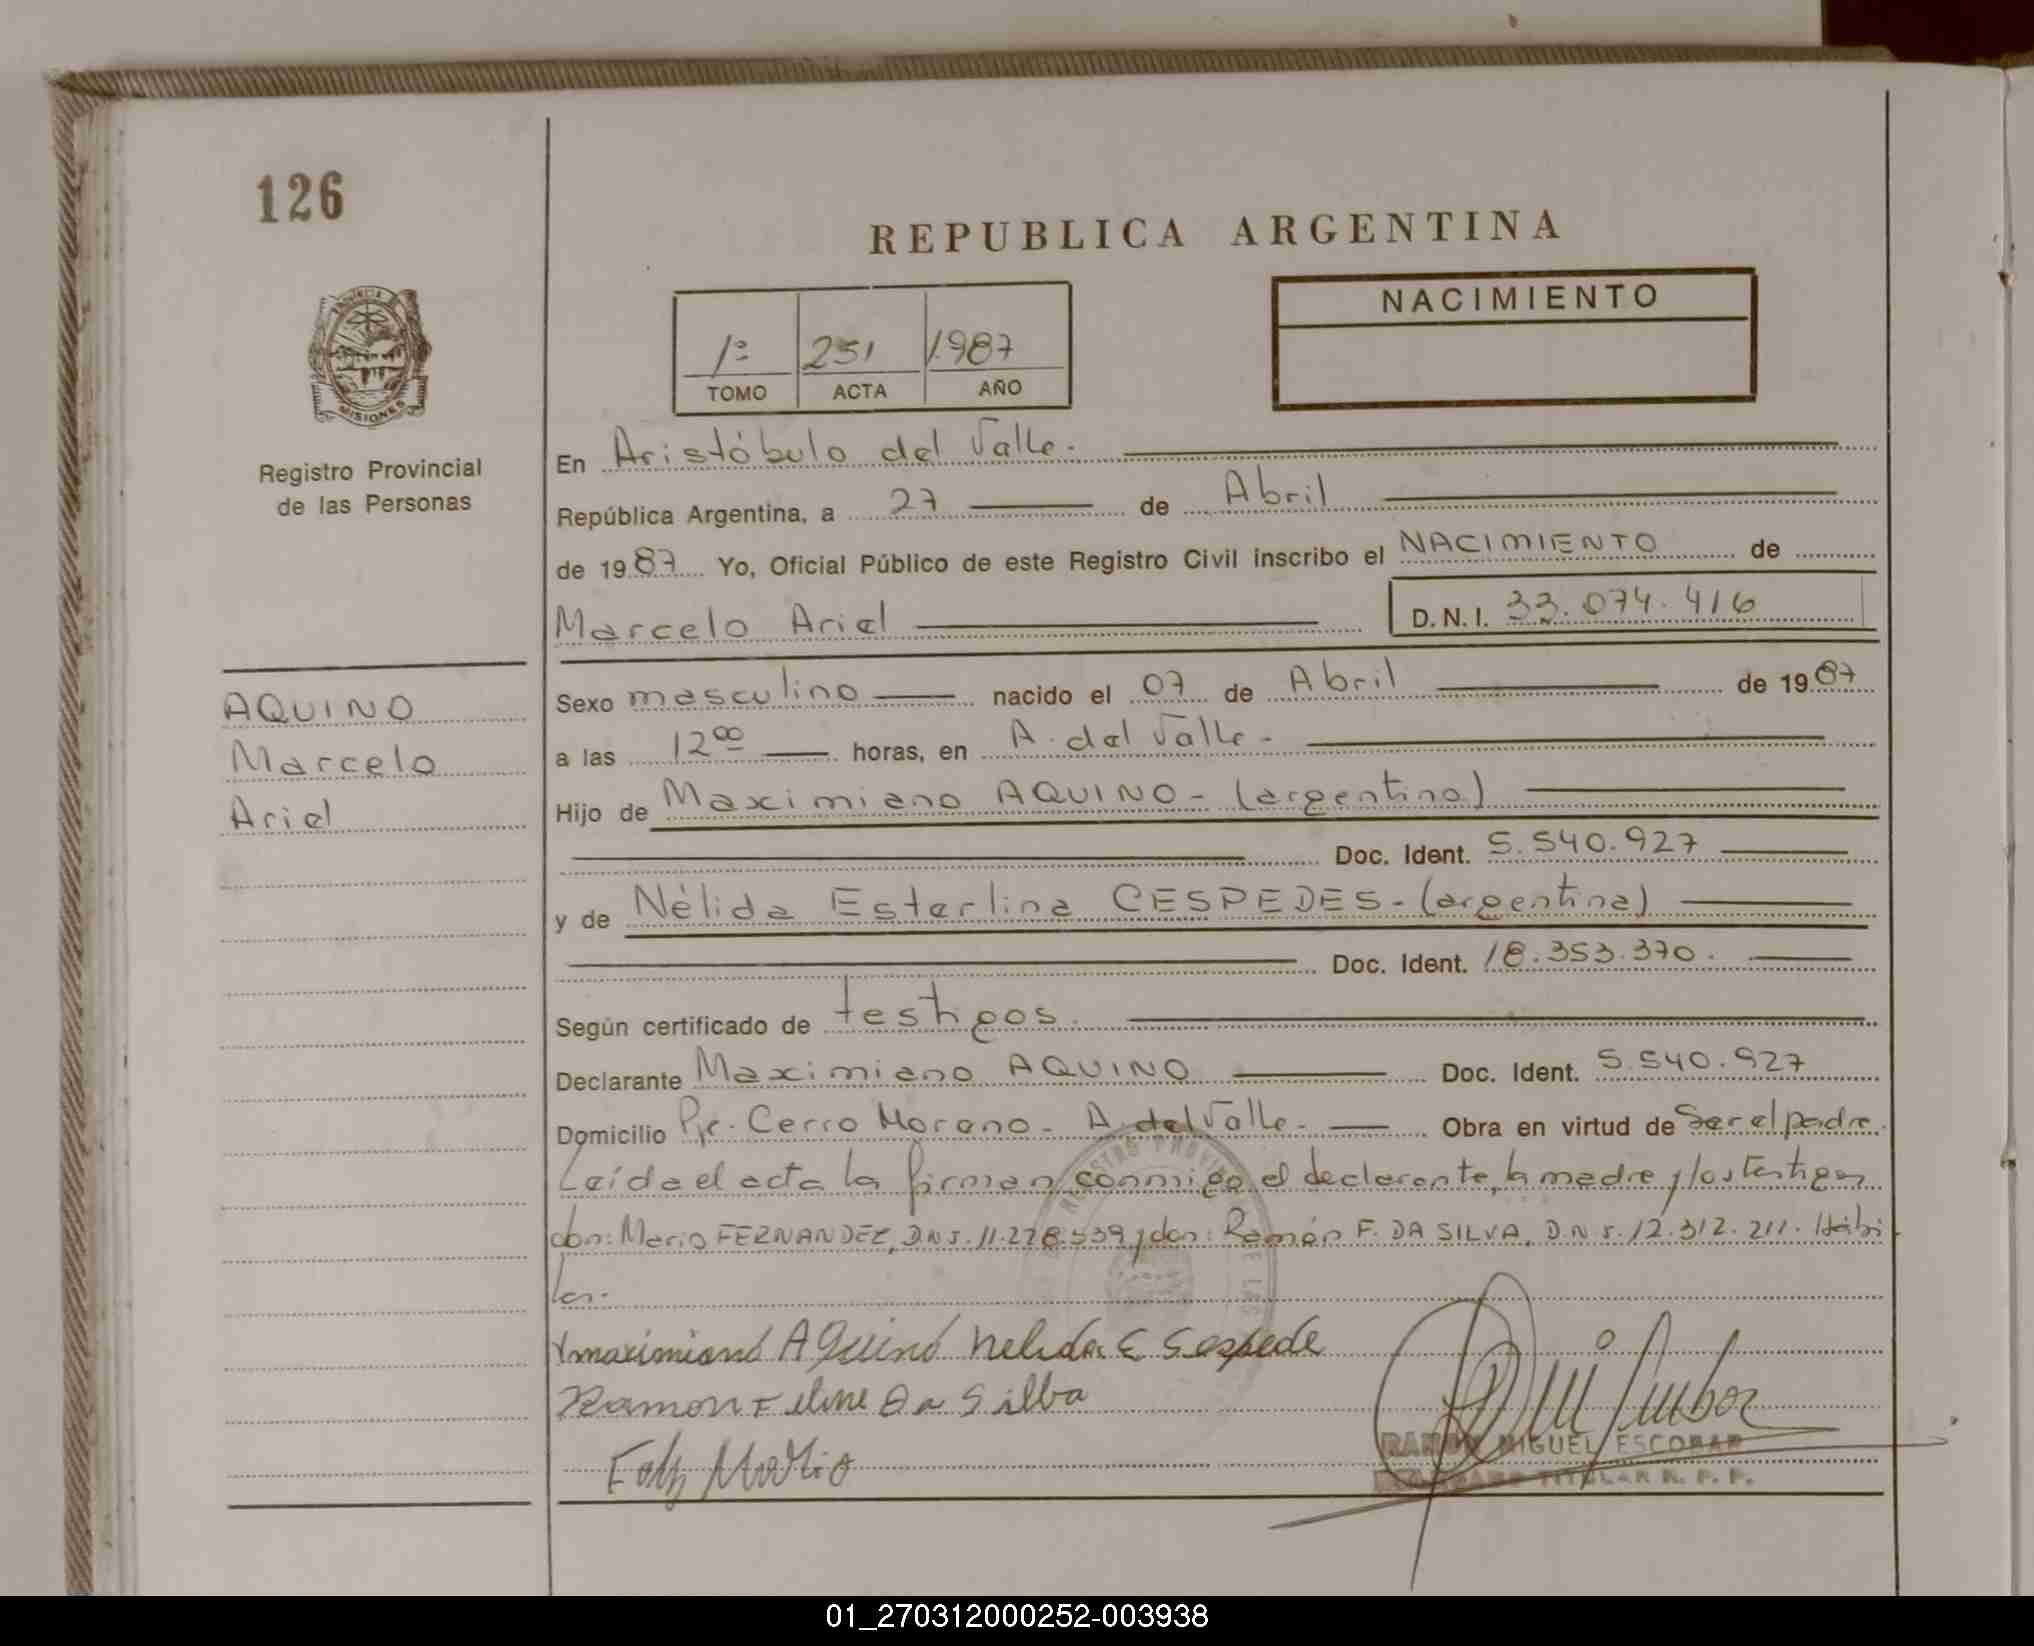 126
REPUBLICA ARGENTINA
NACIMIENTO
1º 251 1.987
TOMO ACTA AÑO
PROVINCIA DE MISIONES
Registro Provincial
de las Personas
En Aristóbulo del Valle.-
República Argentina, a 27 de Abril
de 1987 Yo, Oficial Público de este Registro Civil inscribo el NACIMIENTO de
Marcelo Ariel D.N.I. 33.074.416
AQUINO
Marcelo
Ariel
Sexo masculino nacido el 07 de Abril de 1987
a las 12 00 horas, en A. del Valle.-
Hijo de Maximiano AQUINO- (argentino)
Doc. Ident. 5.540.927
y de Nélida Esterlina CESPEDES- (argentina)
Doc. Ident. 18.353.370.
Según certificado de testigos.
Declarante Maximiano AQUINO Doc. Ident. 5.540.927
Domicilio Pje. Cerro Moreno- A. del Valle.- Obra en virtud de Ser el padre.
Leída el acta la firman conmigo el declarante, la madre y los testigos
don: Mario FERNANDEZ, D.N.I. 11.228.539 y don: Ramón F. DA SILVA, D.N.I. 12.312.211. Hábi
les.-
maximiano Aquino nelida E Sespede
Ramon Feline Da Silba
Mario
RAMON MIGUEL ESCOBAR
TITULAR R. P. P.
01_270312000252-003938